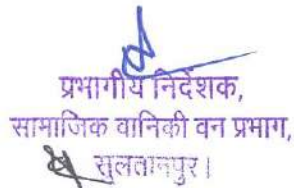 प्रभागीय निदेशक,
सामाजिक वानिकी वन प्रभाग,
सुलतानपुर।